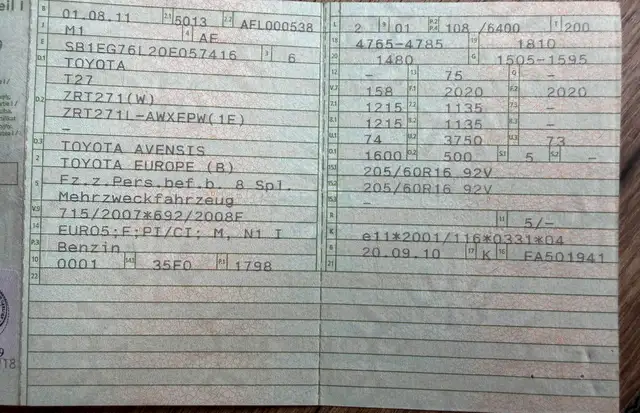 eil I
B 01.08.11 2.1 5013 2.2 AFL000538
J M1 4 AF
E SB1EG76L20E057416 3 6
D.1 TOYOTA
T27
D.2 ZRT271(W)
ZRT271L-AWXEPW(1E)
-
D.3 TOYOTA AVENSIS
2 TOYOTA EUROPE (B)
5 Fz.z.Pers.bef.b. 8 Spl.
Mehrzweckfahrzeug
V.9 715/2007*692/2008F
14 EURO5;F;PI/CI; M, N1 I
P.3 Benzin
10 0001 14.1 35F0 P.1 1798
22
L 2 9 01 P.2 P.4 108 /6400 T 200
18 4765-4785 19 1810
20 1480 G 1505-1595
12 - 13 75 Q -
V.7 158 F.1 2020 F.2 2020
7.1 1215 7.2 1135 7.3 -
8.1 1215 8.2 1135 8.3 -
U.1 74 U.2 3750 U.3 73
O.1 1600 O.2 500 S.1 5 S.2 -
15.1 205/60R16 92V
15.2 205/60R16 92V
15.3 -
R 11 5/-
K e11*2001/116*0331*04
6 20.09.10 17 K 16 FA501941
21